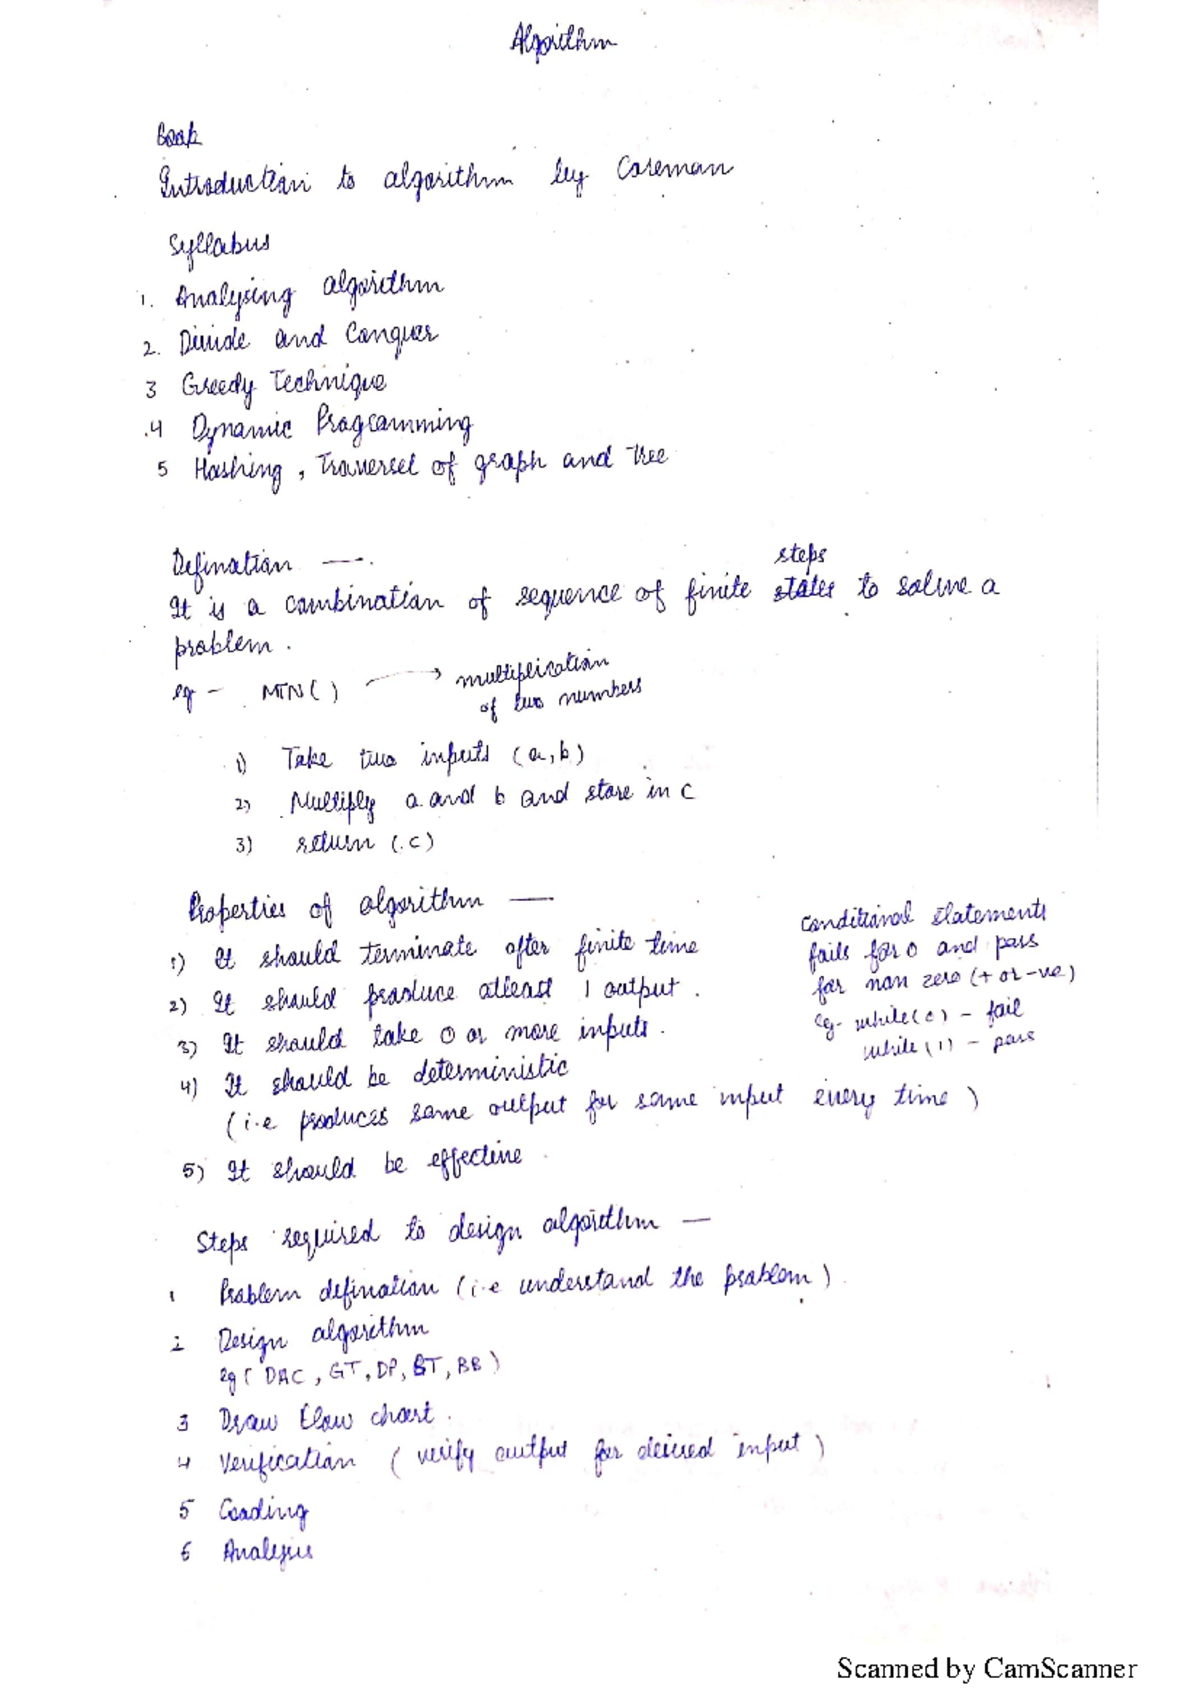 Algorithm
Book
Introduction to algorithm by Coreman
Syllabus
1. Analysing algorithm
2. Divide and Conquer
3 Greedy Technique
4 Dynamic Programming
5 Hashing, Traversel of graph and Tree
Defination —.
steps
It is a combination of sequence of finite states to solve a
problem.
eg - MTN( ) → multiplication
of two numbers
1) Take two inputs (a,b)
2) Multiply a and b and store in c
3) return (c)
Properties of algorithm —
1) It should terminate after finite time
2) It should produce atleast 1 output.
3) It should take 0 or more inputs.
4) It should be deterministic
(i.e produces same output for same input every time)
5) It should be effective
conditional statements
fails for 0 and pass
for non zero (+ or -ve)
eg- while(0) - fail
while(1) - pass
Steps required to design algorithm —
1 Problem defination (i.e understand the problem).
2 Design algorithm
eg ( DAC, GT, DP, BT, BB)
3 Draw flow chart.
4 Verification (verify output for desired input)
5 Coading
6 Analysis
Scanned by CamScanner